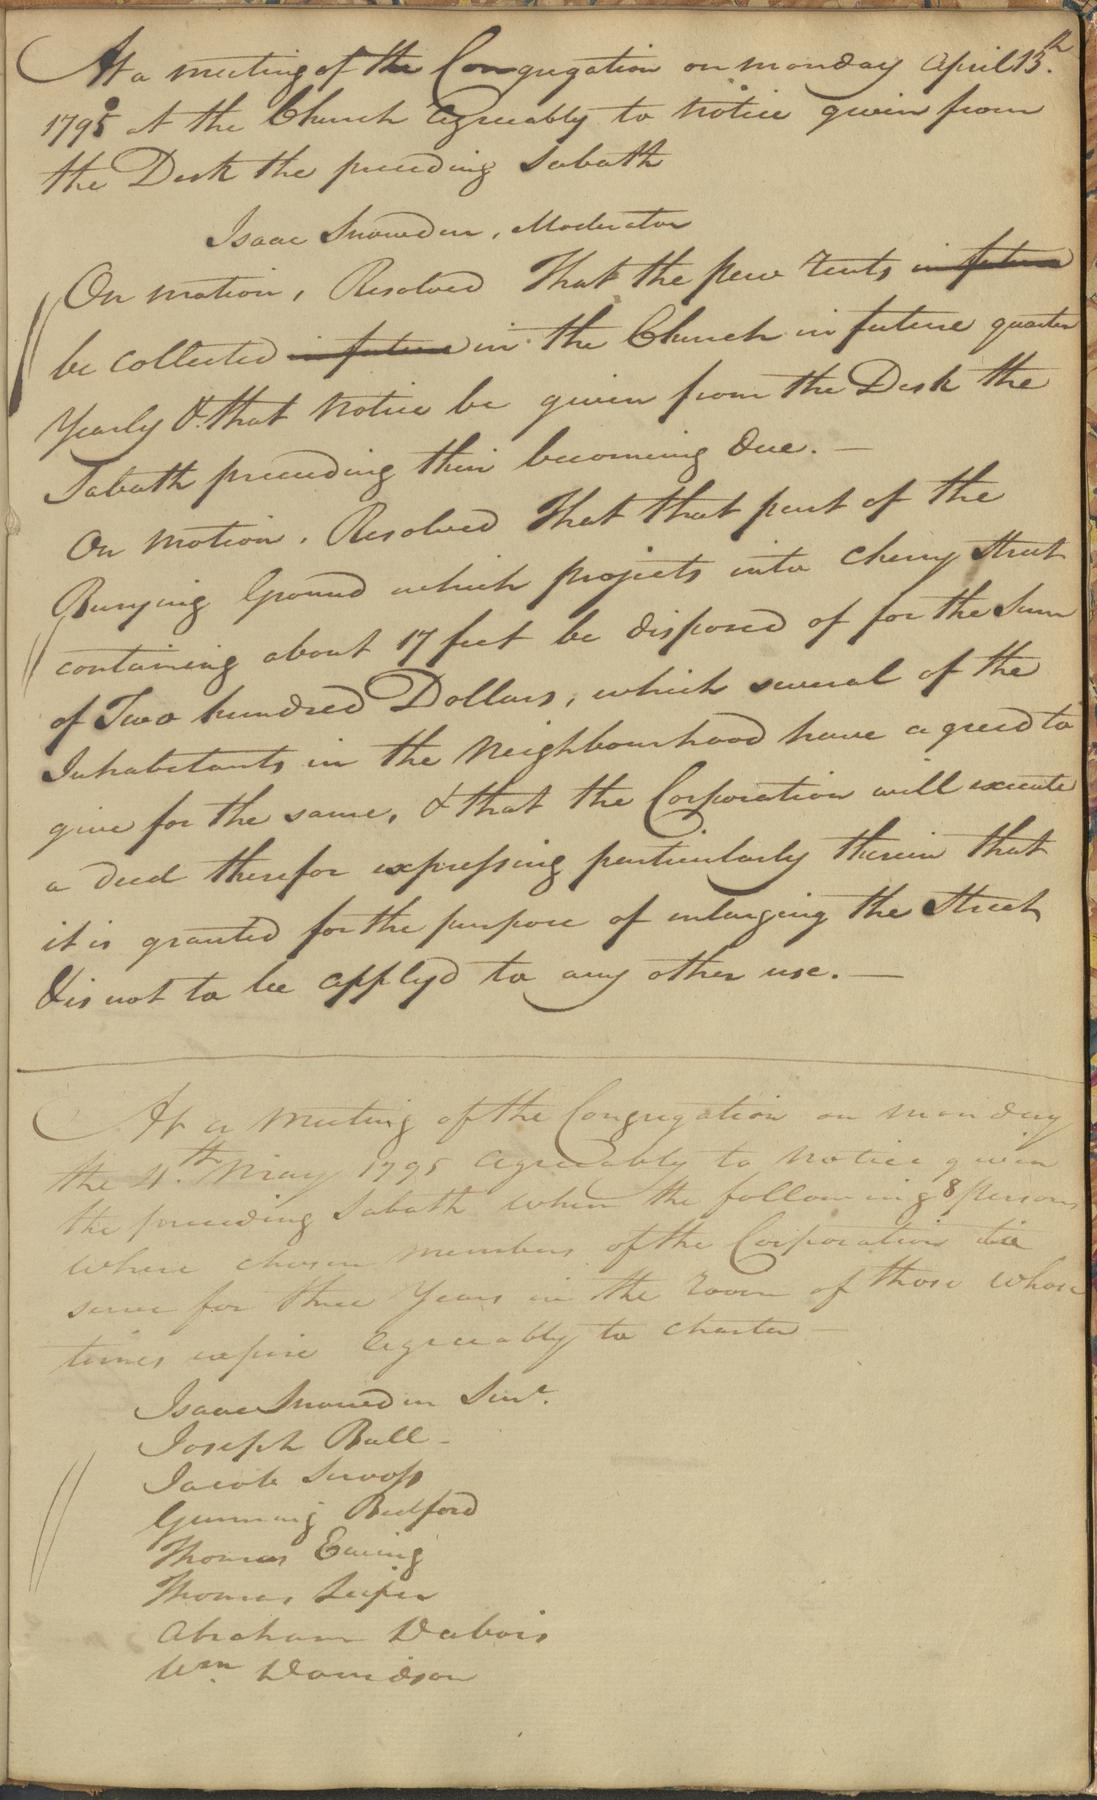 At a meeting of the Congregation on monday April 13.th
1795 at the Church agreeably to notice given from
the Desk the preceding Sabath
Isaac Snowden, Moderator
On motion, Resolved That the pew rents in future
be collected in future in the Church in future quarter
Yearly & that notice be given from the Desk the
Sabath preceeding thier becoming due. —
On motion, Resolved That that part of the
Burying Ground which projects into Cherry Street
containing about 17 feet be disposed of for the Sum
of Two hundred Dollars, which several of the
Inhabetants in the Neighbourhood have agreed to
give for the same, & that the Corporation will execute
a deed therefor expressing particularly therein that
it is granted for the purpose of enlarging the Street
& is not to be applyd to any other use. —
At a meeting of the Congregation on monday
the 4.th May 1795 agreeably to notice given
the preceeding Sabath when the following 8 persons
where chosen members of the Corporation to
serve for three Years in the room of those whose
times expire agreeably to charter —
Isaac Snowden Senr.
Joseph Ball -
Jacob
Gunning Bedford
Thomas Ewing
Thomas Leiper
Abraham Dubois
Wm. Davidson